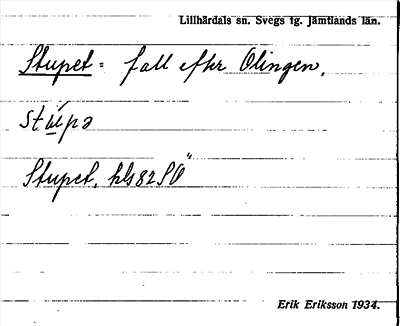 Lillhärdals sn. Svegs tg. Jämtlands län.
Stupet = fall efter Olingen.
stúpə
Stupet, hls 82 SÖ"
Erik Eriksson 1934.